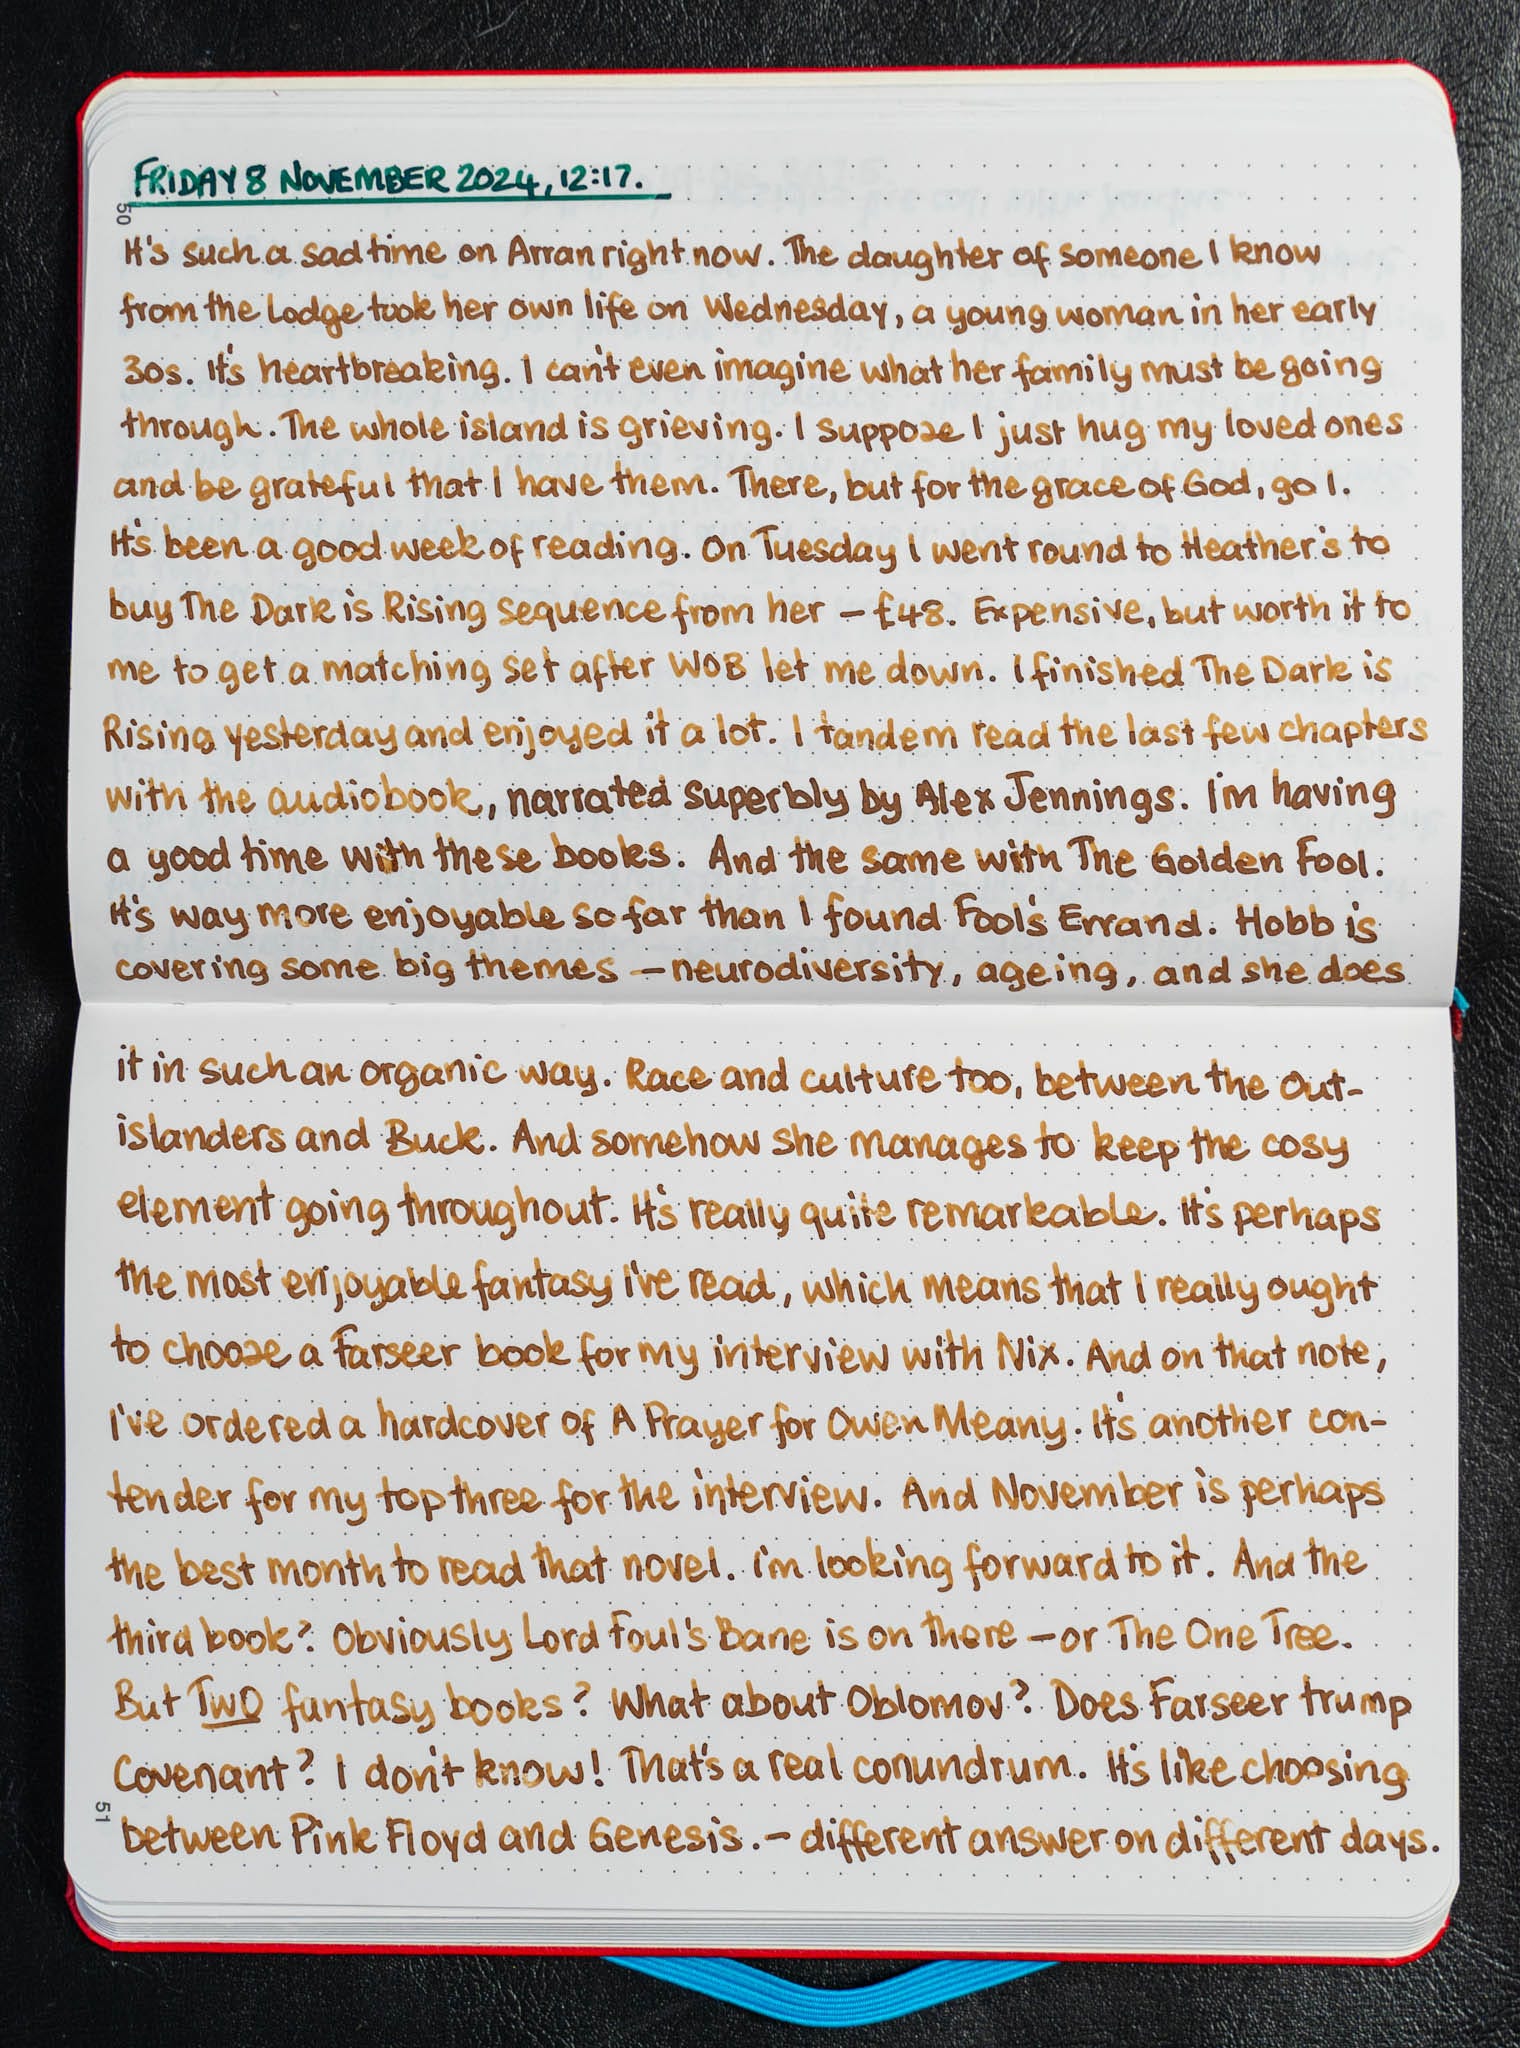 FRIDAY 8 NOVEMBER 2024, 12:17.
50
It's such a sad time on Arran right now. The daughter of someone I know
from the Lodge took her own life on Wednesday, a young woman in her early
30s. It's heartbreaking. I can't even imagine what her family must be going
through. The whole island is grieving. I suppose I just hug my loved ones
and be grateful that I have them. There, but for the grace of God, go I.
It's been a good week of reading. On Tuesday I went round to Heather's to
buy The Dark is Rising sequence from her – £48. Expensive, but worth it to
me to get a matching set after WOB let me down. I finished The Dark is
Rising yesterday and enjoyed it a lot. I tandem read the last few chapters
with the audiobook, narrated superbly by Alex Jennings. I'm having
a good time with these books. And the same with The Golden Fool.
It's way more enjoyable so far than I found Fool's Errand. Hobb is
covering some big themes – neurodiversity, ageing, and she does
it in such an organic way. Race and culture too, between the Out-
islanders and Buck. And somehow she manages to keep the cosy
element going throughout. It's really quite remarkable. It's perhaps
the most enjoyable fantasy I've read, which means that I really ought
to choose a Farseer book for my interview with Nix. And on that note,
I've ordered a hardcover of A Prayer for Owen Meany. It's another con-
tender for my top three for the interview. And November is perhaps
the best month to read that novel. I'm looking forward to it. And the
third book? Obviously Lord Foul's Bane is on there – or The One Tree.
But TWO fantasy books? What about Oblomov? Does Farseer trump
Covenant? I don't know! That's a real conundrum. It's like choosing
51
between Pink Floyd and Genesis. – different answer on different days.